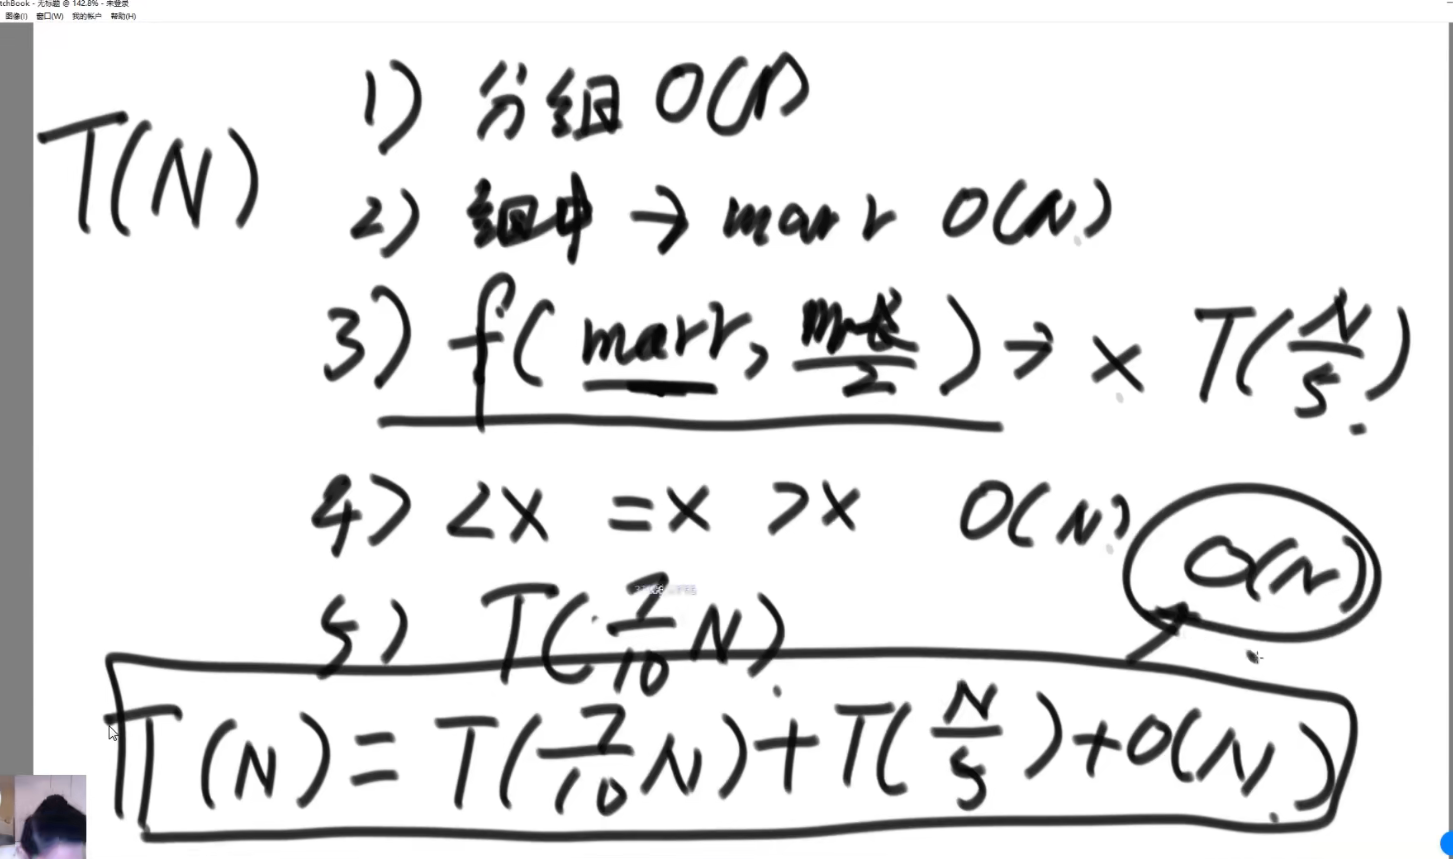 tchBook - 无标题 @ 142.8% - 未登录
图像(I) 窗口(W) 我的帐户 帮助(H)
T(N)
1) 分组 O(N)
2) 组中 → marr O(N)
3) f( marr, /2 ) → x T(N/5)
4) <x =x >x O(N)
O(N)
5) T(7/10 N)
T(N) = T(7/10 N) + T(N/5) + O(N)